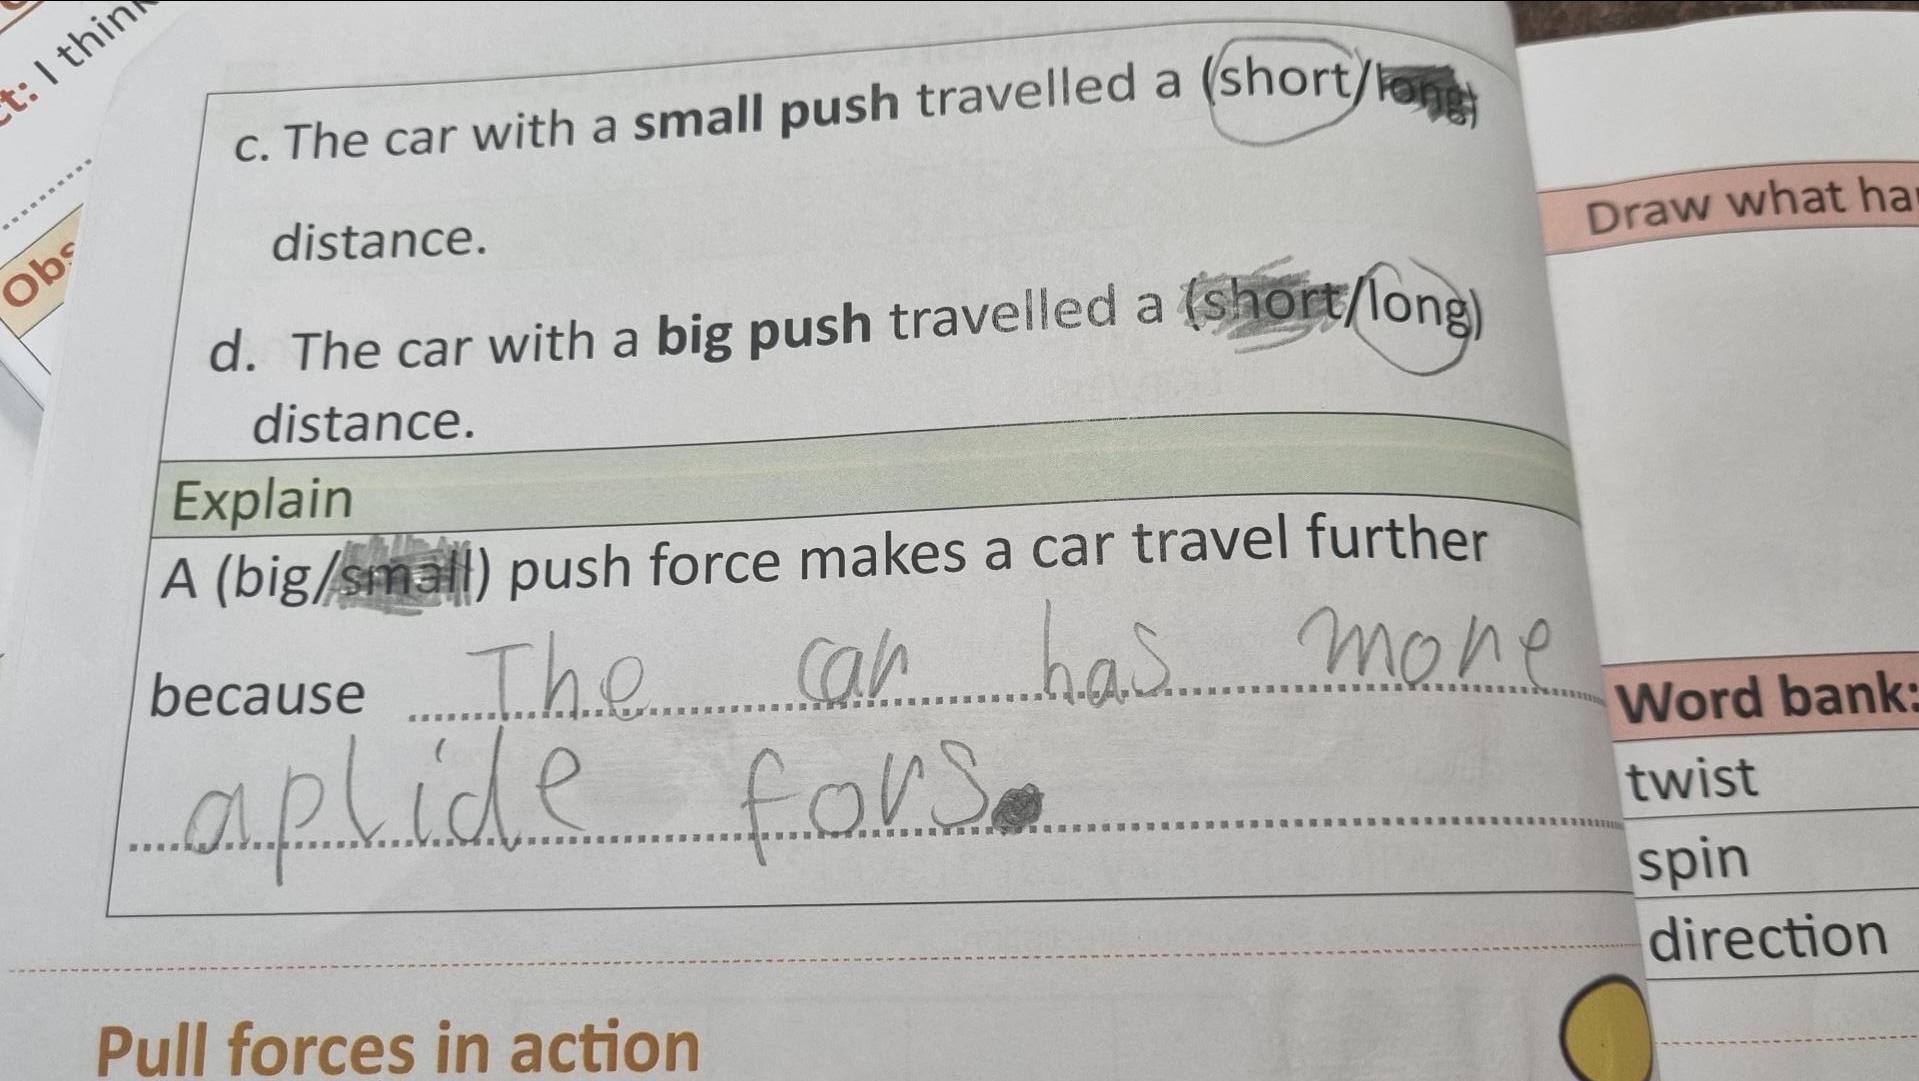 t: I think
Obs
c. The car with a small push travelled a (short/long)
distance.
d. The car with a big push travelled a (short/long)
distance.
Explain
A (big/small) push force makes a car travel further
because The car has more
aplide fors.
Pull forces in action
Draw what ha
Word bank:
twist
spin
direction